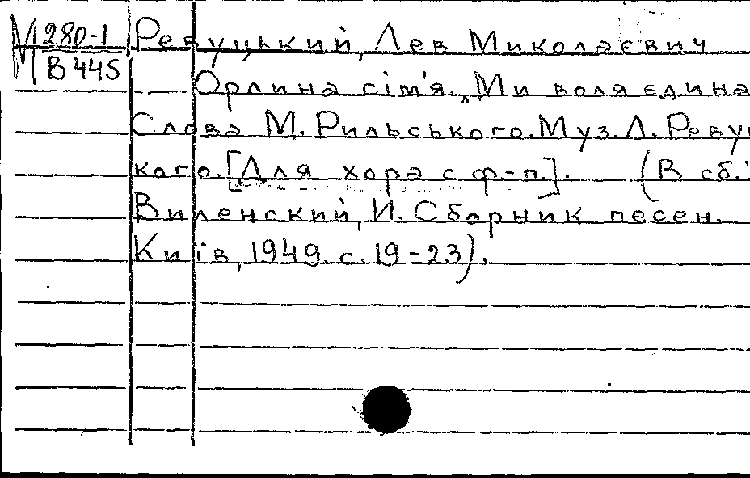 М 280-1 Ревуцький, Лев Миколаєвич
В 445
Орлина сім'я. „Ми воля єдина
Слова М. Рильського. Муз. Л. Реву
кого. [Для хора с ф-п.]. (В сб.:
Виленский, И. Сборник песен.
Київ, 1949. с. 19-23).